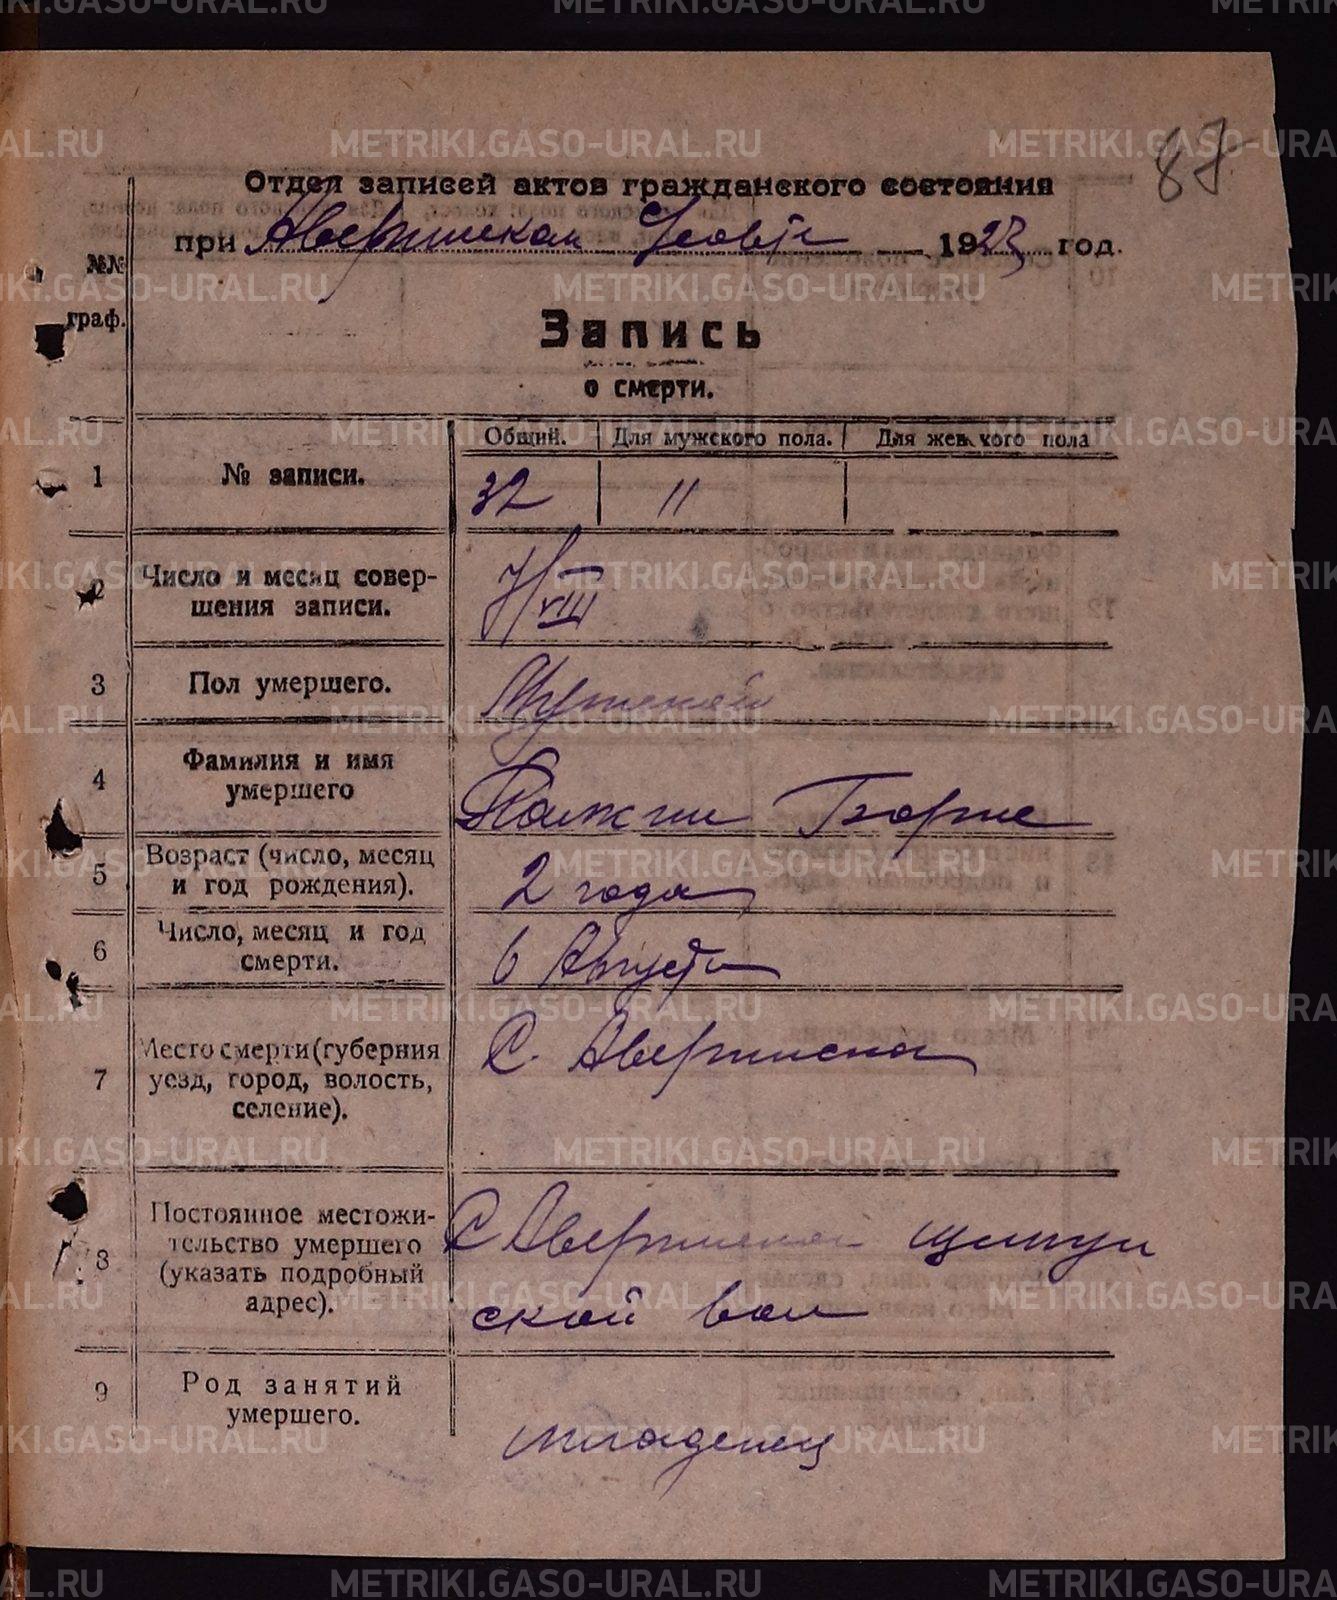 87
Отдел записей актов гражданского состояния
при Аверинском 1923 год.
№№
граф.
Запись
о смерти.
Общий. Для мужского пола. Для женского пола
1 № записи. 32 11
2 Число и месяц совер-
шения записи. 7/VIII
3 Пол умершего. Мужской
4 Фамилия и имя
умершего Борис
5 Возраст (число, месяц
и год рождения). 2 года
6 Число, месяц и год
смерти. 6 Августа
7 Место смерти (губерния
уезд, город, волость,
селение). С. Аверинском
8 Постоянное местожи-
тельство умершего
(указать подробный
адрес). С Аверинском Щипун
ской вол
9 Род занятий
умершего.
младенец
METRIKI.GASO-URAL.RU